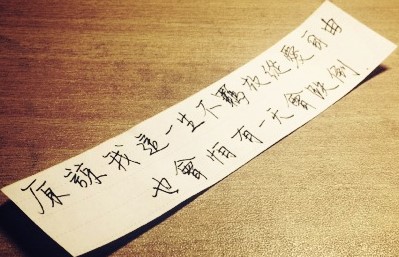 原諒我這一生不羈放縱愛自由
也會怕有一天會跌倒